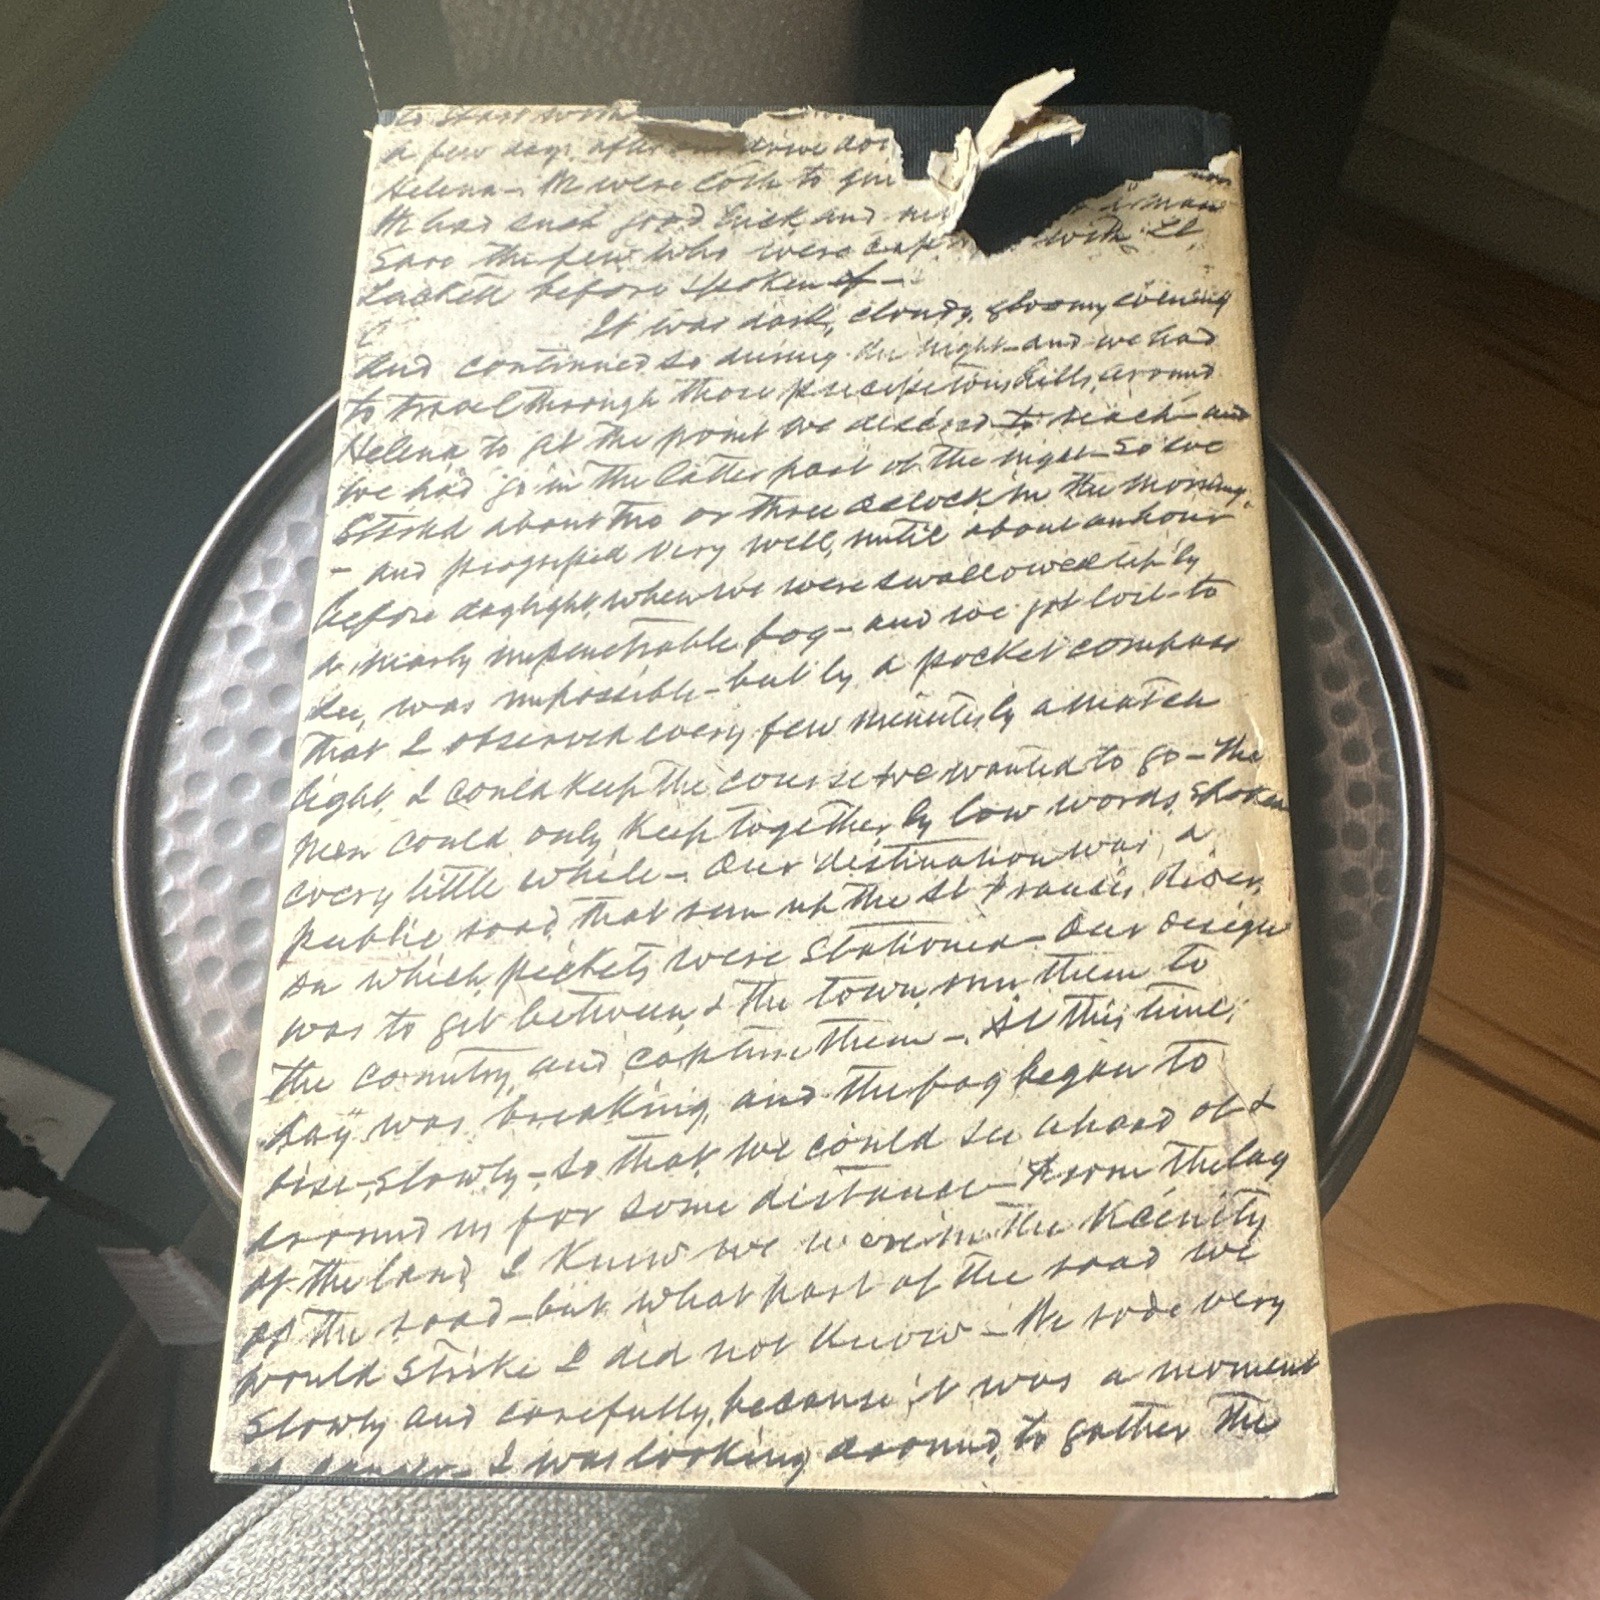 to start with
a few days after our drive
Helena – We were loth to
We had such good luck and a man
Save the few who were with Lt
before spoken of –
It was dark, cloudy, gloomy evening
and continued so during the night – and we had
to travel through those precipitous hills, around
Helena to get the point we desired to reach – and
we had go in the latter part of the night – So we
Started about two or three oclock in the morning,
– and progressed very well, until about an hour
before daylight, when we were swallowed up by
a nearly impenetrable fog – and we got lost – to
see, was impossible – but by a pocket compass
that I observed every few minutes by a match
light, I could keep the course we wanted to go – the
men could only keep together by low words, spoken
every little while – Our destination was a
public road that run up the St Francis River,
on which pickets were stationed – Our design
was to get between & the town, run them to
the country, and capture them – At this time,
day was breaking, and the fog began to
rise, slowly – so that we could see ahead of &
around us for some distance – From the lay
of the land, I knew we were in the vicinity
of the road – but what part of the road we
would strike I did not know – We rode very
slowly and carefully, because it was a moment
I was looking around, to gather the